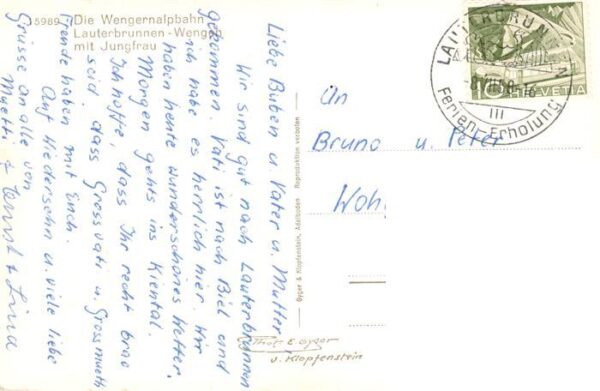 15989 Die Wengernalpbahn
Lauterbrunnen - Wengen
mit Jungfrau
Liebe Buben u. Vater u. Mutter!
Wir sind gut nach Lauterbrunnen
gekommen. Vati ist nach Biel und
ich habe es herrlich hier. Wir
haben heute wunderschönes Wetter.
Morgen gehts ins Kiental.
Ich hoffe, dass Ihr recht brav
seid dass Grossvati u. Grossmueti
Freude haben mit Euch.
Auf Wiedersehn u. viele liebe
Grüsse an alle von
Muetti + Ernst + Lina
Gyger & Klopfenstein, Adelboden Reproduktion verboten
Phot E Gyger
u. Klopfenstein
LAUTERBRUNNEN
VIII
10 HELVETIA
III
Ferien-Erholung
An
Bruno u. Peter
Woh